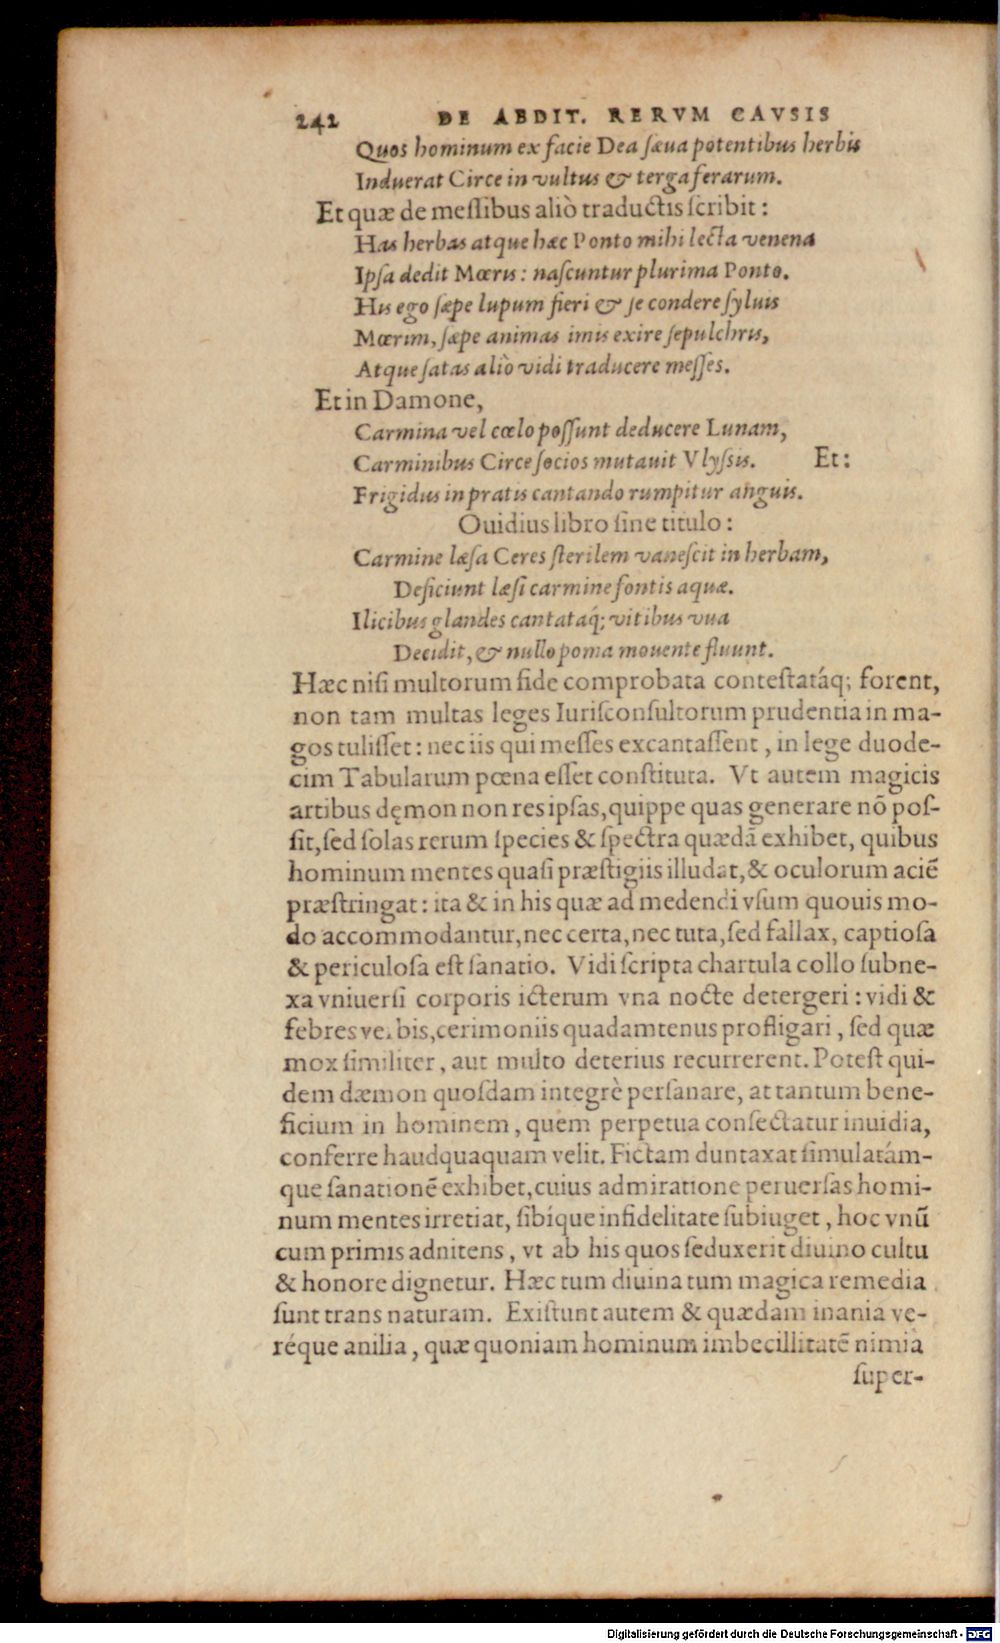 242 DE ABDIT. RERVM CAVSIS
Quos hominum ex facie Dea sæua potentibus herbis
Induerat Circe in vultus & terga ferarum.
Et quæ de messibus aliò traductis scribit:
Has herbas atque hæc Ponto mihi lecta venena
Ipsa dedit Mœris: nascuntur plurima Ponto.
His ego sæpe lupum fieri & se condere syluis
Mœrim, sæpe animas imis exire sepulchris,
Atque satas aliò vidi traducere messes.
Et in Damone,
Carmina vel cœlo possunt deducere Lunam,
Carminibus Circe socios mutauit Vlyssis. Et:
Frigidus in pratis cantando rumpitur anguis.
Ouidius libro sine titulo:
Carmine læsa Ceres sterilem vanescit in herbam,
Deficiunt læsi carmine fontis aquæ.
Ilicibus glandes cantatáq; vitibus vua
Decidit, & nullo poma mouente fluunt.
Hæc nisi multorum fide comprobata contestatáq; forent,
non tam multas leges Iurisconsultorum prudentia in ma-
gos tulisset: nec iis qui messes excantassent, in lege duode-
cim Tabularum pœna esset constituta. Vt autem magicis
artibus dęmon non res ipsas, quippe quas generare nō pos-
sit, sed solas rerum species & spectra quædā exhibet, quibus
hominum mentes quasi præstigiis illudat, & oculorum aciē
præstringat: ita & in his quæ ad medendi vsum quouis mo-
do accommodantur, nec certa, nec tuta, sed fallax, captiosa
& periculosa est sanatio. Vidi scripta chartula collo subne-
xa vniuersi corporis icterum vna nocte detergeri: vidi &
febres verbis, cerimoniis quadamtenus profligari, sed quæ
mox similiter, aut multo deterius recurrerent. Potest qui-
dem dæmon quosdam integrè persanare, at tantum bene-
ficium in hominem, quem perpetua consectatur inuidia,
conferre haudquaquam velit. Fictam duntaxat simulatám-
que sanationē exhibet, cuius admiratione peruersas homi-
num mentes irretiat, sibíque infidelitate subiuget, hoc vnū
cum primis adnitens, vt ab his quos seduxerit diuino cultu
& honore dignetur. Hæc tum diuina tum magica remedia
sunt trans naturam. Existunt autem & quædam inania ve-
réque anilia, quæ quoniam hominum imbecillitatē nimia
super-
Digitalisierung gefördert durch die Deutsche Forschungsgemeinschaft - DFG